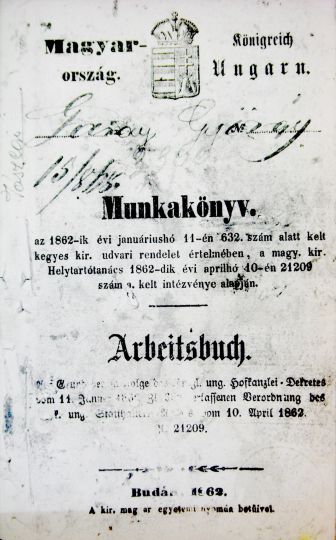 Magyar-
ország.
Königreich
Ungarn.
György
15/865.
Munkakönyv.
az 1862-ik évi januáriushó 11-én 632. szám alatt kelt
kegyes kir. udvari rendelet értelmében, a magy. kir.
Helytartótanács 1862-dik évi aprilhó 10-én 21209
szám a. kelt intézvénye alapján.
Arbeitsbuch.
ung. Hofkanzlei-Dekretes
vom 11. Verordnung des
k. ung. vom 10. April 1862.
21209.
Budán, 1862.
A kir. egyetemi nyomda betűivel.